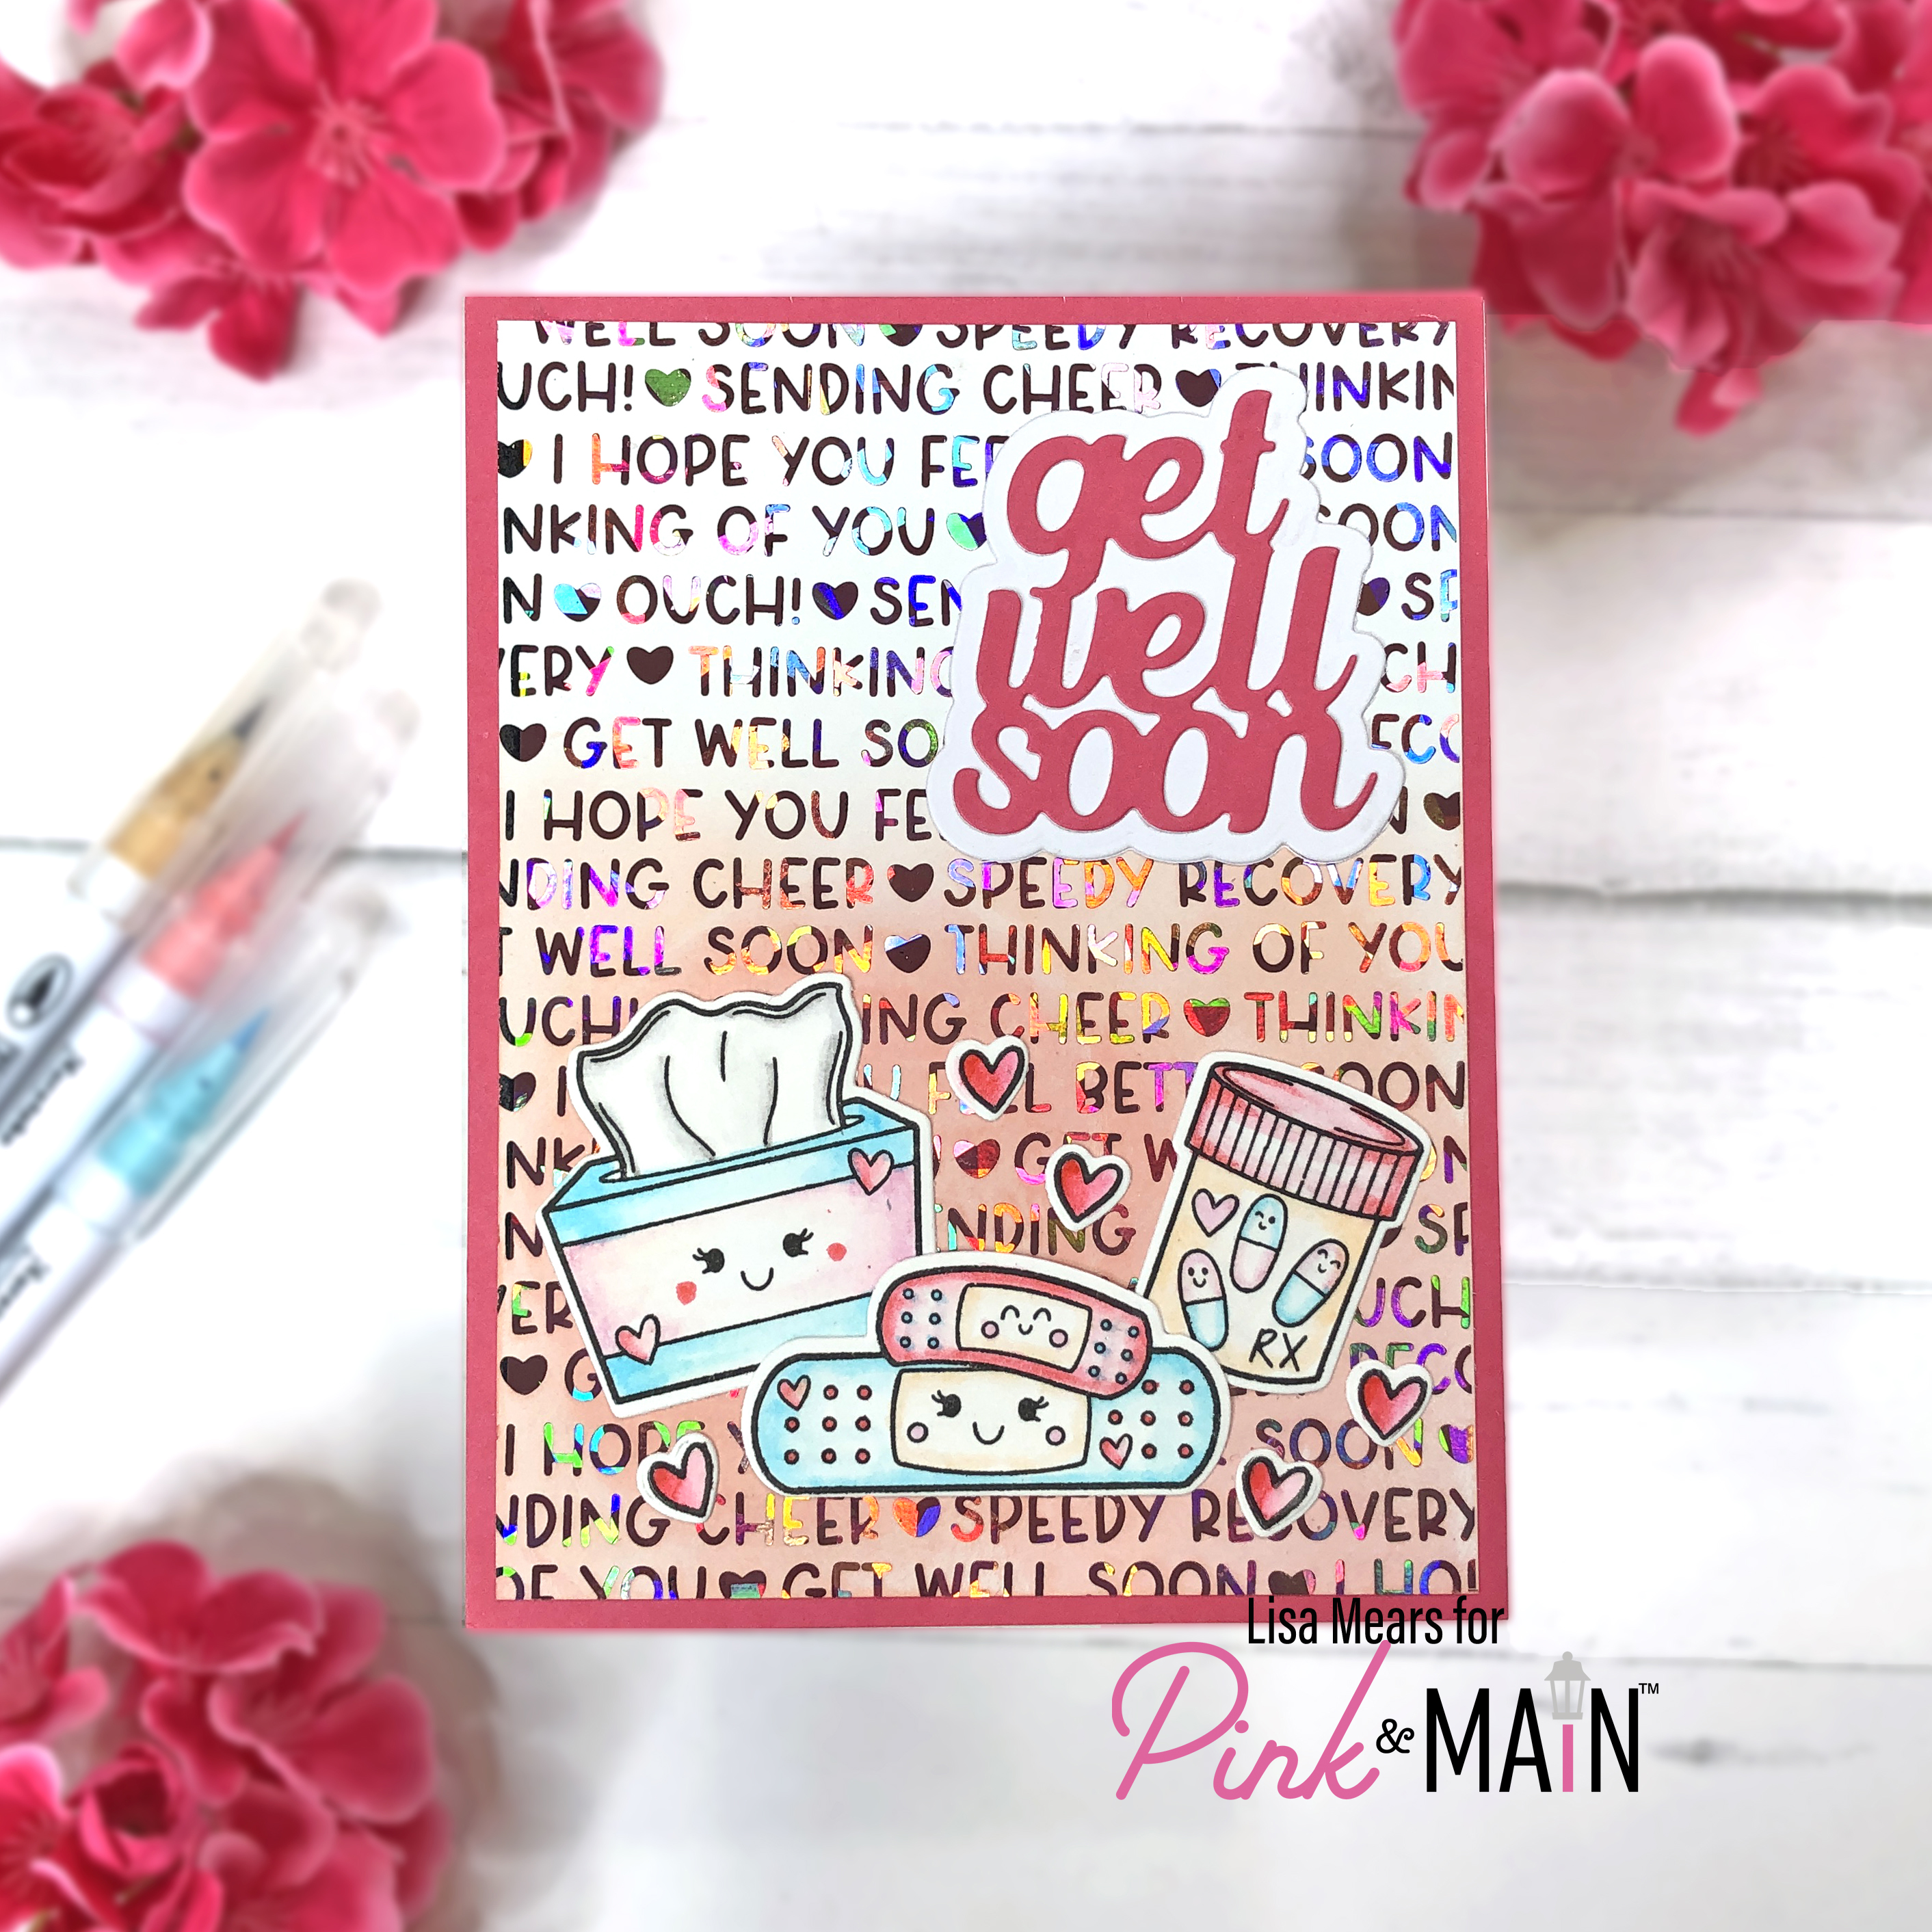 WELL SOON SPEEDY RECOVERY
UCH! SENDING CHEER THINKIN
I HOPE YOU FEE SOON
NKING OF YOU SOON
N OUCH! SEN SP
VERY THINKING CH
GET WELL SO ECO
I HOPE YOU FE N
NDING CHEER SPEEDY RECOVERY
T WELL SOON THINKING OF YOU
UCH! ING CHEER THINKIN
I U FEEL BETT SOON
NK GET W ON
N NDING SP
VER OUCH
G L RECO
I HOPE Y SOON
NDING CHEER SPEEDY RECOVERY
OF YOU GET WELL SOON I HOP
get
well
soon
RX
Lisa Mears for
Pink & MAiN™